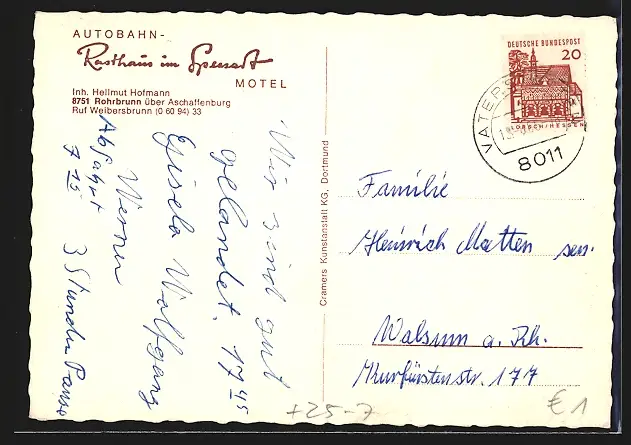 AUTOBAHN-
Rasthaus im Spessart
MOTEL
Inh. Hellmut Hofmann
8751 Rohrbrunn über Aschaffenburg
Ruf Weibersbrunn (0 60 94) 33
Wir sind gut
gelandet. 17 45
Gisela Wolfgang
Werner
Abfahrt
7 15 3 Stunden Pause
Cramers Kunstanstalt KG, Dortmund
DEUTSCHE BUNDESPOST
20
LORSCH/HESSEN
8011
Familie
Heinrich Matten sen.
Walsum a. Rh.
Kurfürstenstr. 177
+25-7
€1